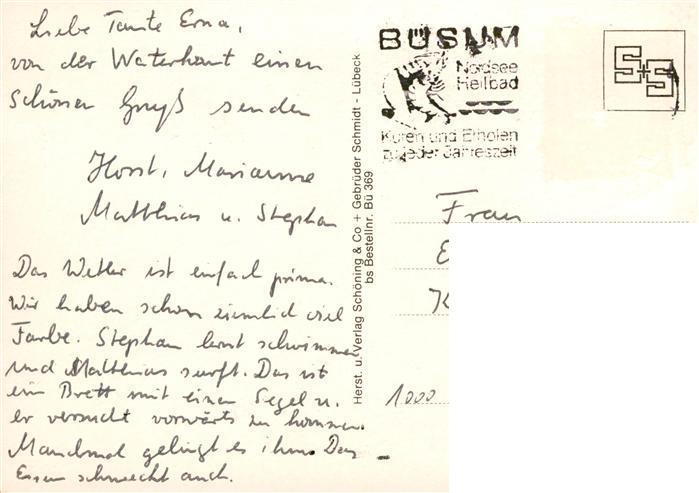 Liebe Tante Erna,
von der Waterkant einen
Schönen Gruß senden
Horst, Marianne
Matthias u. Stephan
Das Wetter ist einfach prima.
Wir haben schon ziemlich viel
Farbe. Stephan lernt schwimmen
und Matthias surft. Das ist
ein Brett mit einem Segel u.
er versucht vorwärts zu kommen.
Manchmal gelingt es ihm. Das
Essen schmeckt auch.
Herst. u. Verlag Schöning & Co + Gebrüder Schmidt - Lübeck
bs Bestellnr. Bü 369
BÜSUM
Nordsee
Heilbad
Kuren und Erholen
zu jeder Jahreszeit
S+S
Frau
E
K
1000